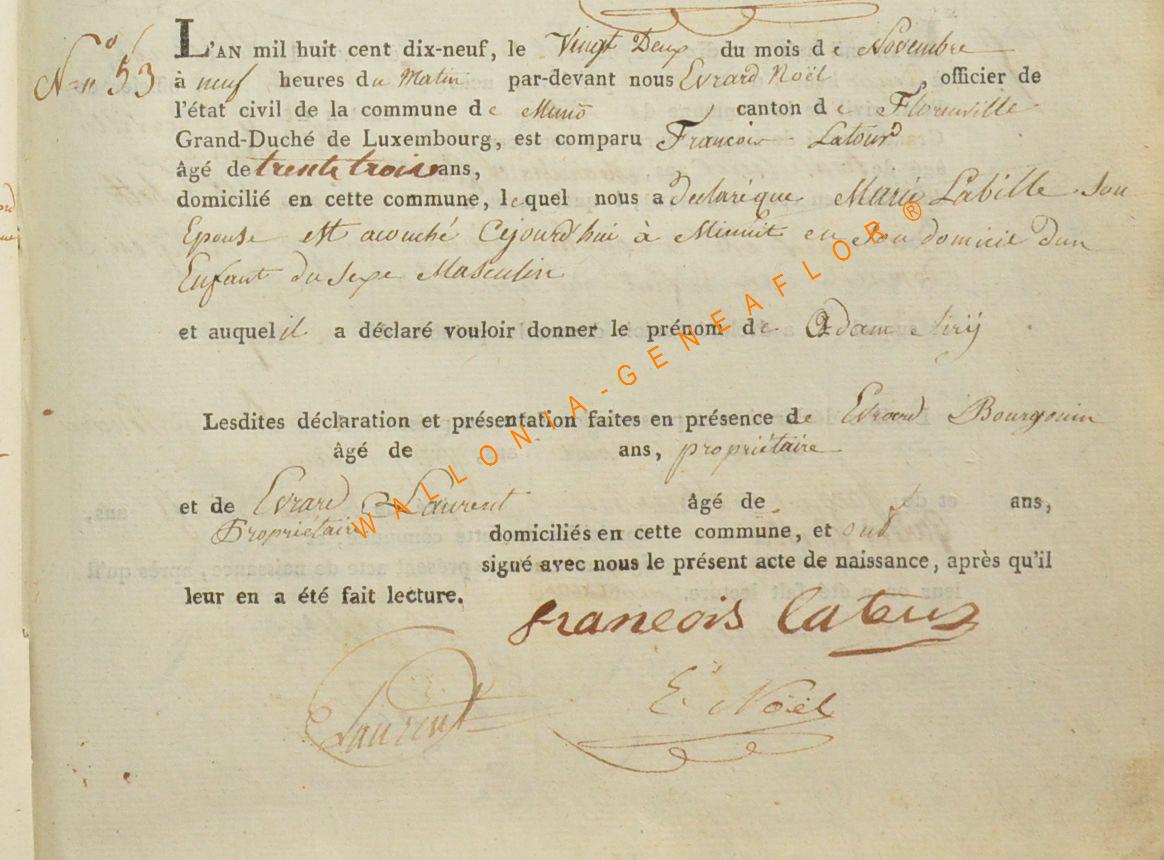 N° 53
L'AN mil huit cent dix-neuf, le Vingt Deux du mois de Novembre
à neuf heures du Matin par-devant nous Evrard Noël, officier de
l'état civil de la commune de Muno canton de Florenville
Grand-Duché de Luxembourg, est comparu François Latour
âgé de trente trois ans,
domicilié en cette commune, lequel nous a Declaré que Marie Labille Son
Epouse est acouché Cejourd'hui à Minuit en Son domicie Dun
Enfant du Sexe Masculin
et auquel il a déclaré vouloir donner le prénom de Adam
Lesdites déclaration et présentation faites en présence de Evrard Bourgouin
âgé de ans, propriétaire
et de Evrard Laurent âgé de ans,
Propriétaire domiciliés en cette commune, et ont
signé avec nous le présent acte de naissance, après qu'il
leur en a été fait lecture.
françois latour
E. Noël
Laurent
WALLONIA-GENEAFLOR®